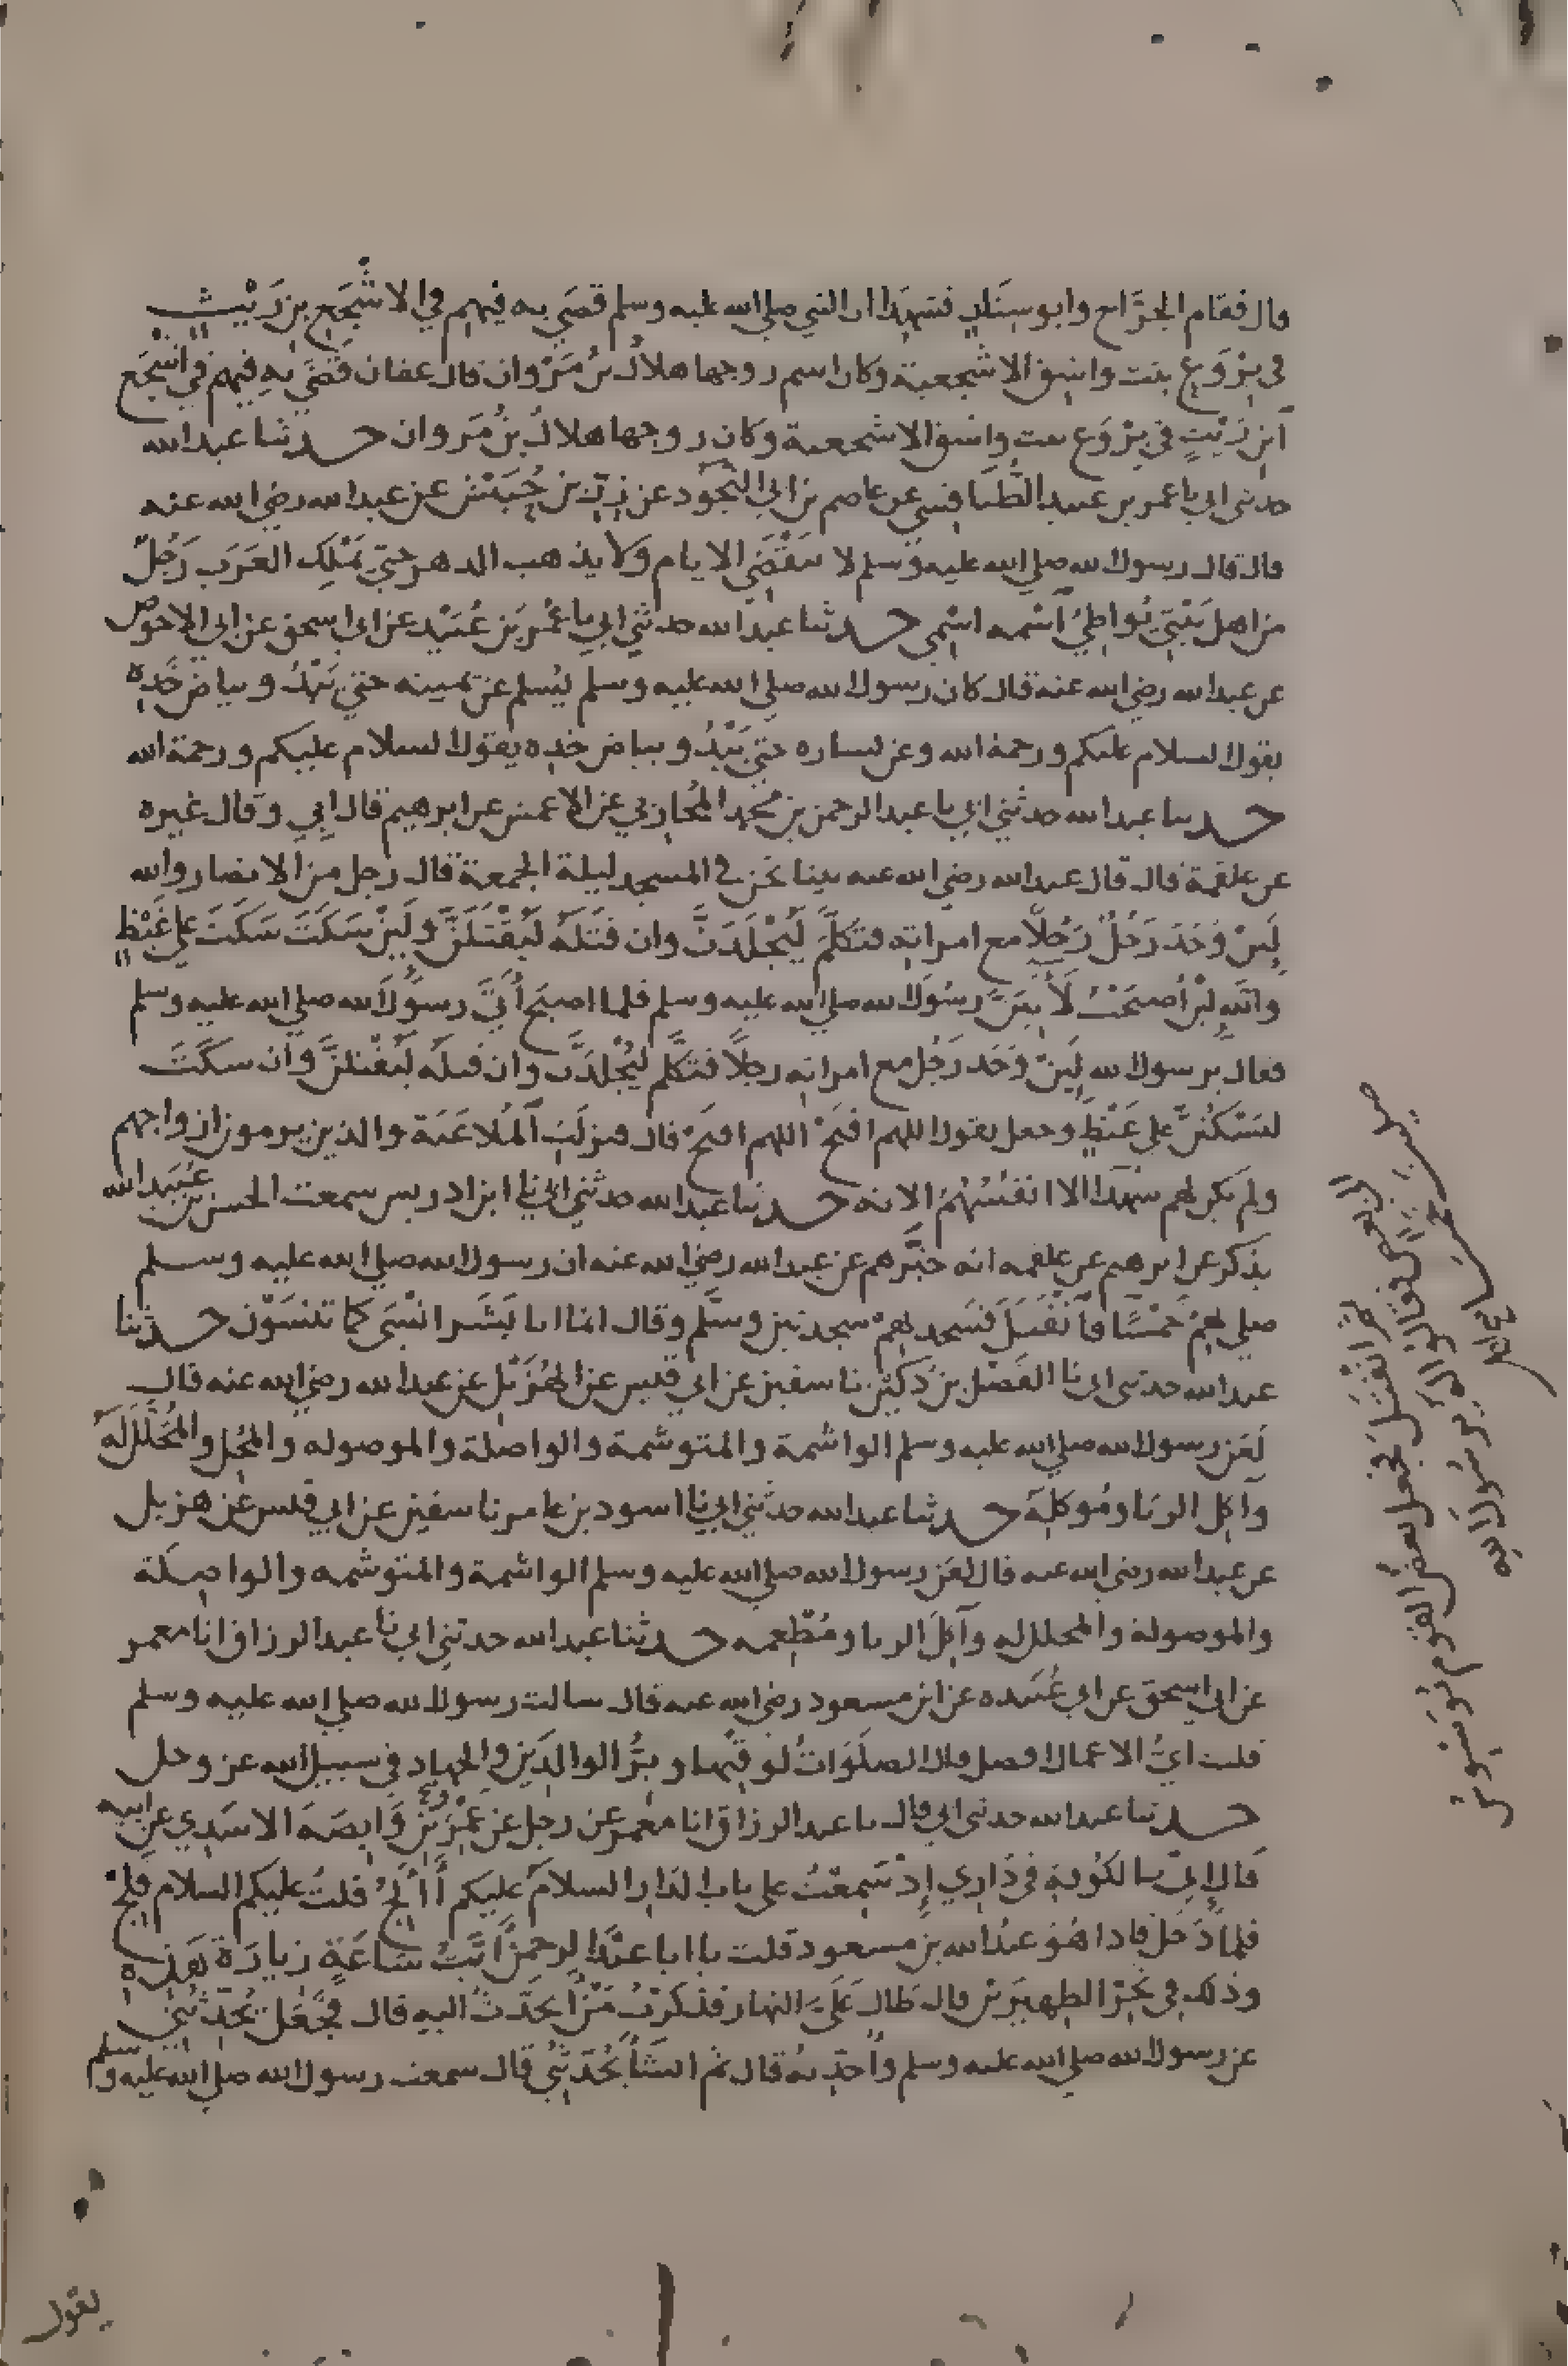 قال فقام الجراح وابو سنان فشهدا ان النبي صلى الله عليه وسلم قضى به فيهم في الاشجع بن ريث
في بروع بنت واشق الاشجعية وكان اسم زوجها هلال بن مروان قال عفان قضى به فيهم في اشجع
ابن ريث في بروع بنت واشق الاشجعية وكان زوجها هلال بن مروان حدثنا عبد الله
حدثني ابي نا عمر بن عبيد الطنافسي عن عاصم بن ابي النجود عن زر بن حبيش عن عبد الله رضي الله عنه
قال قال رسول الله صلى الله عليه وسلم لا تنقضي الايام ولا يذهب الدهر حتى يملك العرب رجل
من اهل بيتي يواطئ اسمه اسمي حدثنا عبد الله حدثني ابي نا عمر بن عبيد عن ابي اسحق عن ابي الاحوص
عن عبد الله رضي الله عنه قال كان رسول الله صلى الله عليه وسلم يسلم عن يمينه حتى يبدو بياض خده
يقول السلام عليكم ورحمة الله وعن يساره حتى يبدو بياض خده يقول السلام عليكم ورحمة الله
حدثنا عبد الله حدثني ابي نا عبد الرحمن بن محمد المحاربي عن الاعمش عن ابرهيم قال ابي وقال غيره
عن علقمة قال قال عبد الله رضي الله عنه بينا نحن في المسجد ليلة الجمعة قال رجل من الانصار والله
لئن وجد رجل رجلا مع امراته فتكلم ليجلدن وان قتله ليقتلن ولئن سكت سكت على غيظ
والله لئن اصبحت لآتين رسول الله صلى الله عليه وسلم فلما اصبح اتى رسول الله صلى الله عليه وسلم
فقال يرسول الله لئن وجد رجل مع امراته رجلا فتكلم ليجلدن وان قتله ليقتلن وان سكت
ليسكتن على غيظ وجعل يقول اللهم افتح اللهم افتح قال فنزلت الملاعنة والذين يرمون ازواجهم
ولم يكن لهم شهدا الا انفسهم الاية حدثنا عبد الله حدثني ابي نا ابن ادريس سمعت الحسن بن عبيد الله
يذكر عن ابرهيم عن علقمه انه خبرهم عن عبد الله رضي الله عنه ان رسول الله صلى الله عليه وسلم
صلى بهم خمسا فانفتل فسجد بهم سجدتين وسلم وقال انما انا بشر انسى كما تنسون حدثنا
عبد الله حدثني ابي نا الفضل بن دكين نا سفين عن ابي قيس عن الهزيل عن عبد الله رضي الله عنه قال
لعن رسول الله صلى الله عليه وسلم الواشمة والمتوشمة والواصلة والموصوله والمحل والمحلل له
وآكل الربا وموكله حدثنا عبد الله حدثني ابي نا اسود بن عامر نا سفين عن ابي قيس عن هزيل
عن عبد الله رضي الله عنه قال لعن رسول الله صلى الله عليه وسلم الواشمة والمتوشمه والواصلة
والموصولة والمحلل له وآكل الربا ومطعمه حدثنا عبد الله حدثني ابي نا عبد الرزاق انا معمر
عن ابي اسحق عن ابي عبيده عن ابن مسعود رضي الله عنه قال سالت رسول الله صلى الله عليه وسلم
قلت اي الاعمال افضل قال الصلوات لوقتها وبر الوالدين والجهاد في سبيل الله عز وجل
حدثنا عبد الله حدثني ابي قال نا عبد الرزاق انا معمر عن رجل عن عمرو بن وابصة الاسدي عن ابيه
قال اني بالكوفة في داري اذ سمعت على باب الدار السلام عليكم أالج قلت عليكم السلام فلج
فلما دخل فاذا هو عبد الله بن مسعود قلت يا ابا عبد الرحمن اية ساعة زيارة هذه
وذلك في نحر الظهيرة قال طال علي النهار فذكرت من اتحدث اليه قال فجعل يحدثني
عن رسول الله صلى الله عليه وسلم واحدثه قال ثم انشا يحدثني قال سمعت رسول الله صلى الله عليه وسلم
يقول
صليت خمسا
ثم انفتل فجعل بعض القوم يوشوش
الى بعض فقالوا له يرسول الله